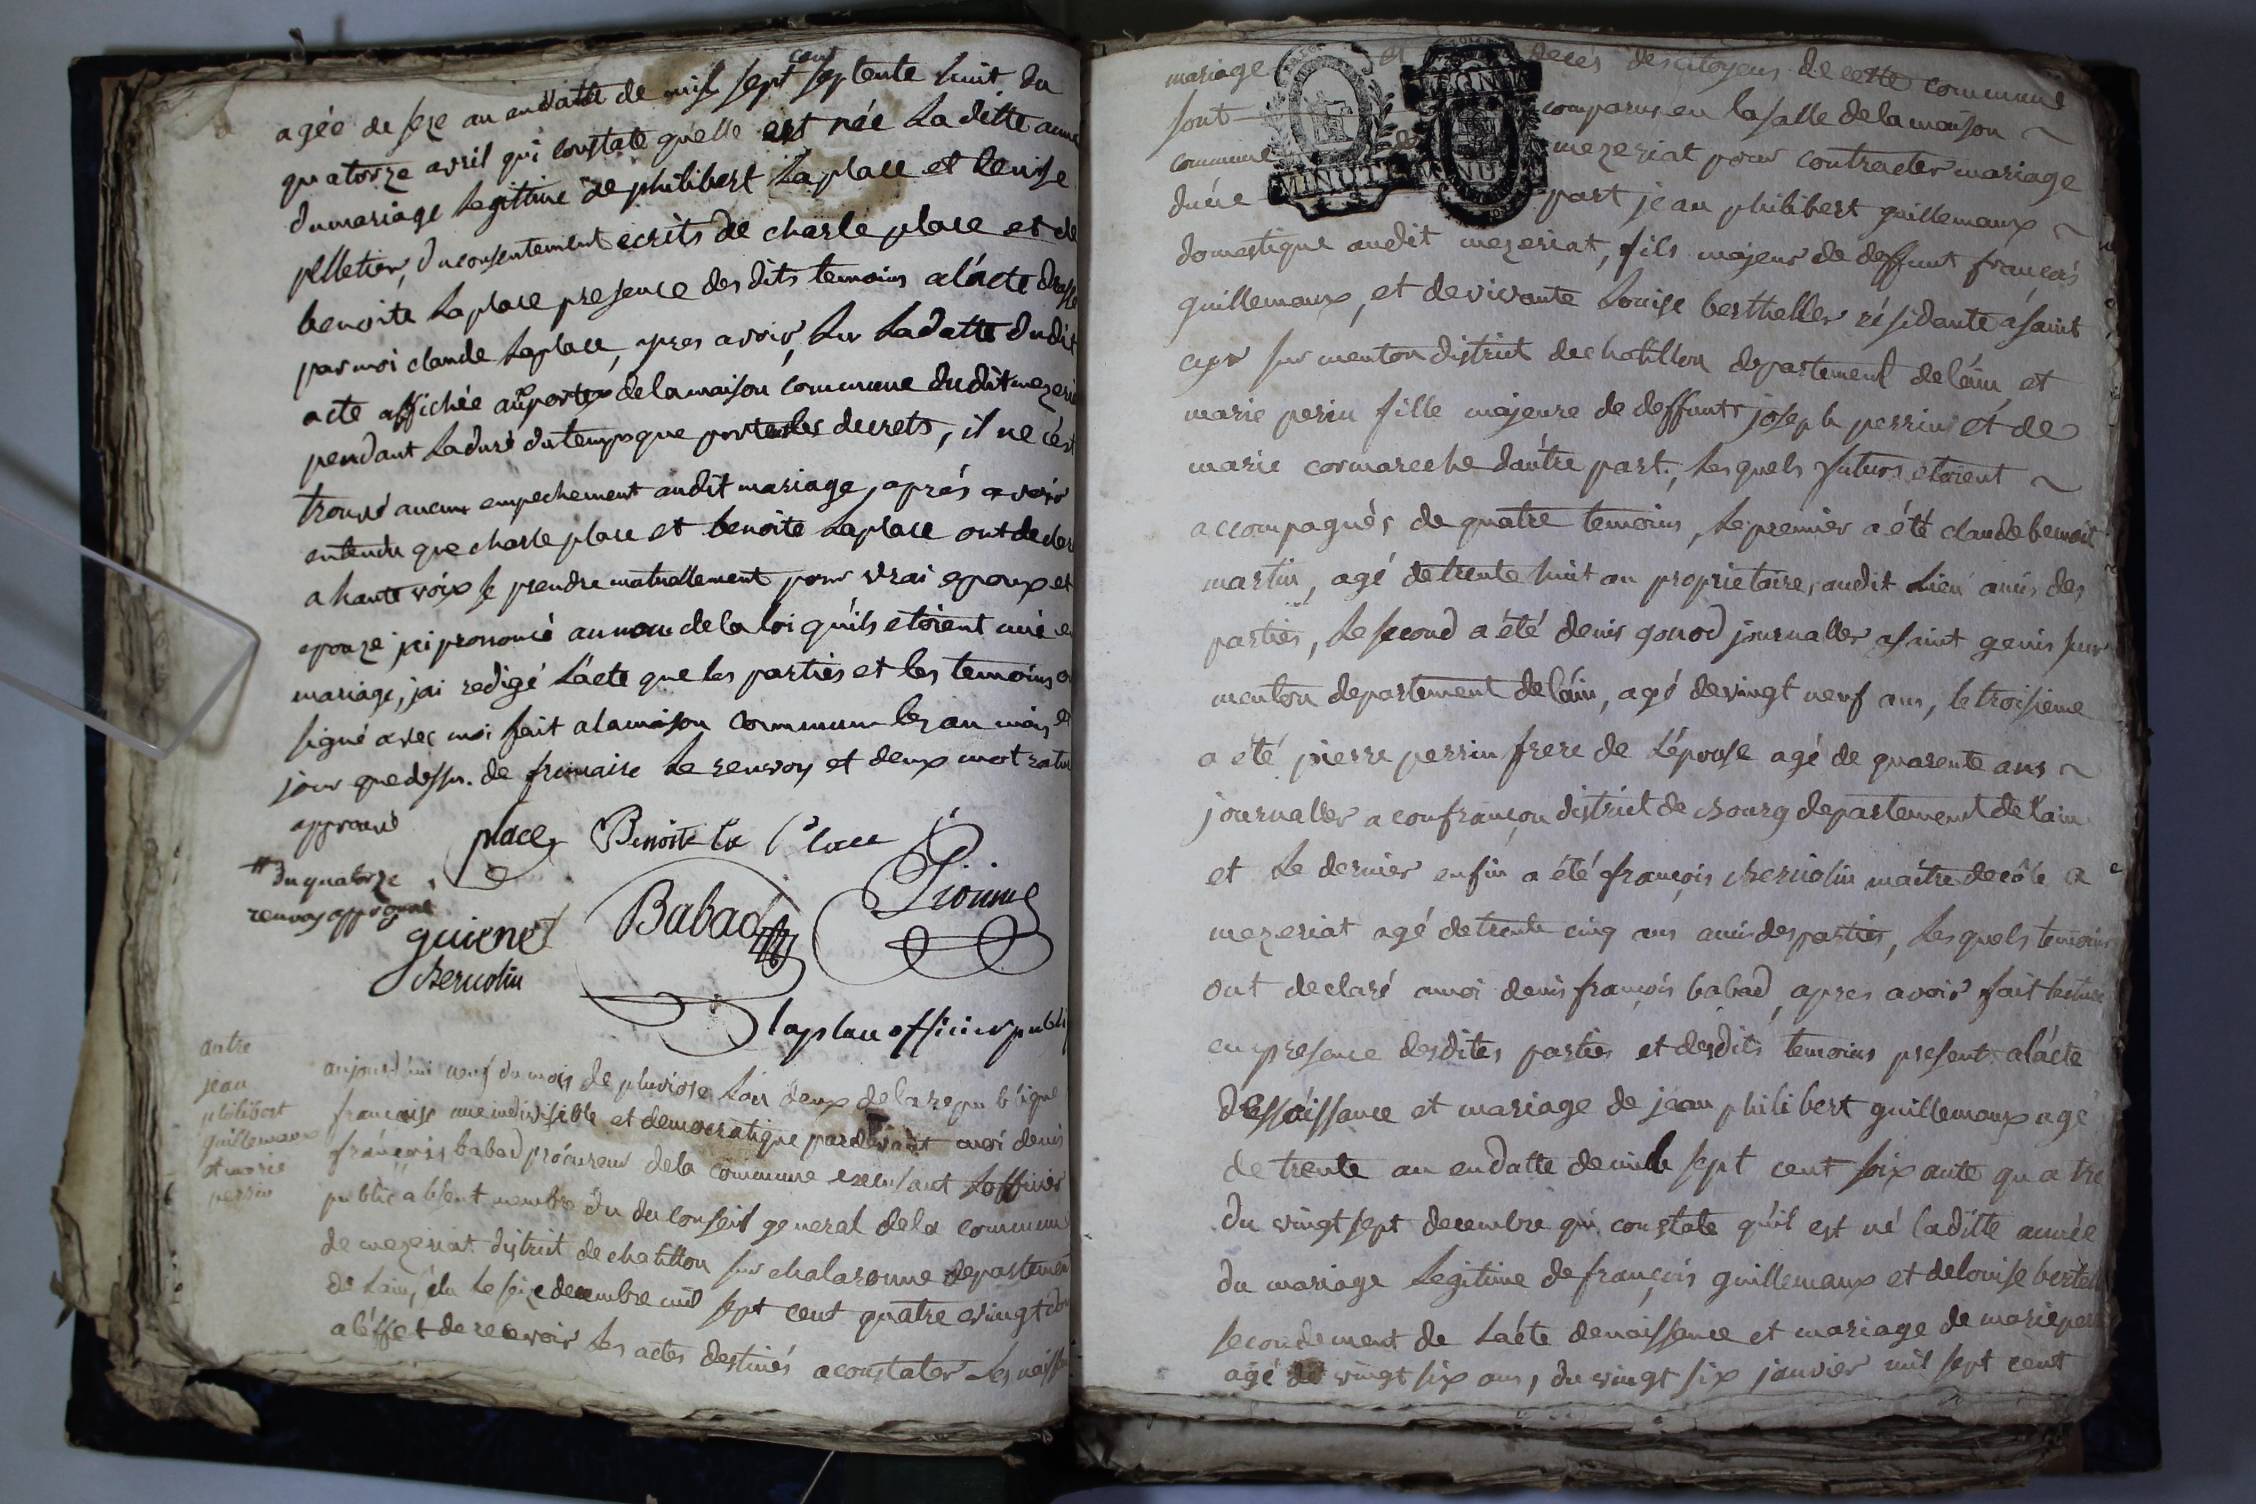 agée de seze an en datte de mil sept cent septente huit du
quatorze avril qui constate quelle est née La ditte anné
du mariage Legittime de philibert Laplace et denise
pelletier, du consentement ecrits de charle place et de
benoite Laplace presence des dits temoins a l'acte dressé
par moi claude Laplace, apres avoir, Lu La datte dudit
acte affichée au portes de la maison commune dudit mezeria
pendant Laduré du temps que porte les decrets, il ne c'est
trouvé aucun empechement audit mariage, aprés avoir
entendu que charle place et benoite Laplace ont declaré
a haute voix se prendre mutuellement pour vrai epoux et
epouze j'ai prononcé au nom de la loi qu'ils etoient unie en
mariage, j'ai redigé L'acte que les parties et les temoins o
signé avec moi fait a la maison commune les an mois et
jour que dessu. de frimaire Le renvoy et deux mot ratu
approuvé
place Benoite la Place
# du quatorze
renvoy approuvé
guienet Babad
chervolin
laplace officier publi
autre
jean
philibert
guillemaux
et marie
perrin
aujourd'hui neuf du mois de pluviose L'an deux de la republique
francaise une indivisible et democratique pardevant moi denis
françois babad procureur de la commune exersant L'officier
public absent membre du du conseil general de la commune
de mezeriat district de chatillon sur chalaronne departement
de Lain, élu Le seize decembre mil sept cent quatre vingt dou
a l'éffet de recevoir Les actes destinés a constater Les naissan
mariage et decés des citoyens de cette commune
sont comparus en la salle de la maison ~
commune de mezeriat pour contracter mariage
MINUTE
d'une part jean philibert guillemaux ~
domestique audit mezeriat, fils majeur de deffunt françois
guillemaux, et de vivante Louise bertheller résidante a saint
cyr sur menton district de chatillon departement de l'ain, et
marie perin fille majeure de deffunt joseph perrin et de
marie cormareche d'autre part, Les quels futurs etoient ~
accompagnés de quatre temoins, Le premier a été claude benoit
martin, agé de trente huit an proprietaire, audit Lieu amis des
parties, Le second a été denis gonod journaller a saint genis sur
menton departement de l'ain, agé de vingt neuf ans, le troisieme
a été pierre perrin frere de L'épouse agé de quarente ans ~
journaller a confrançon district de bourg departement de l'ain
et Le dernier enfin a été françois chervolin maitre decôle a
mezeriat agé de trente cinq ans amis des parties, Les quels temoins
ont declaré a moi denis françois babad, apres avoir fait lecture
en presence desdites parties et desdits temoins present a l'acte
de naissance et mariage de jean philibert guillemaux agé
de trente an en datte de mil sept cent soixante quatre
du vingt sept decembre qui constate qu'il est né laditte année
du mariage Legitime de françois guillemaux et de louise bertell
secondement de L'acte de naissance et mariage de marie perr
agé de vingt six ans, du vingt six janvier mil sept cent